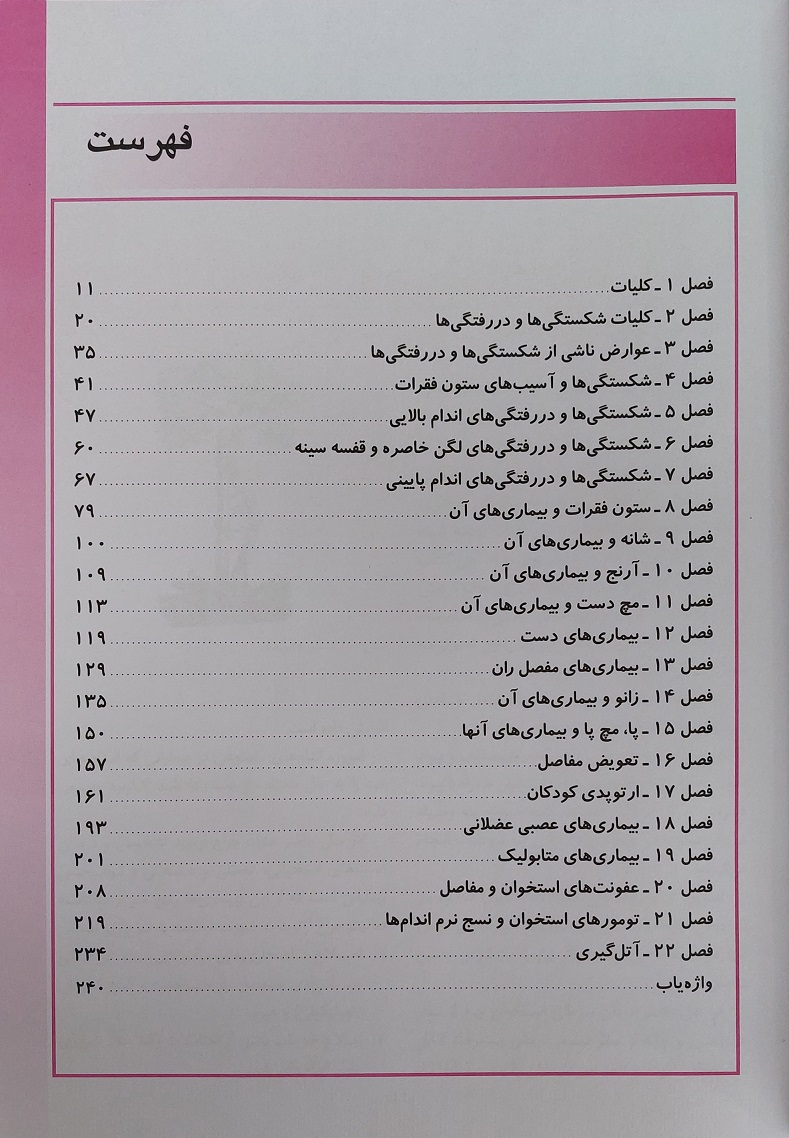 فهرست
فصل ۱ ـ کلیات ........ ۱۱
فصل ۲ ـ کلیات شکستگی‌ها و دررفتگی‌ها ........ ۲۰
فصل ۳ ـ عوارض ناشی از شکستگی‌ها و دررفتگی‌ها ........ ۳۵
فصل ۴ ـ شکستگی‌ها و آسیب‌های ستون فقرات ........ ۴۱
فصل ۵ ـ شکستگی‌ها و دررفتگی‌های اندام بالایی ........ ۴۷
فصل ۶ ـ شکستگی‌ها و دررفتگی‌های لگن خاصره و قفسه سینه ........ ۶۰
فصل ۷ ـ شکستگی‌ها و دررفتگی‌های اندام پایینی ........ ۶۷
فصل ۸ ـ ستون فقرات و بیماری‌های آن ........ ۷۹
فصل ۹ ـ شانه و بیماری‌های آن ........ ۱۰۰
فصل ۱۰ ـ آرنج و بیماری‌های آن ........ ۱۰۹
فصل ۱۱ ـ مچ دست و بیماری‌های آن ........ ۱۱۳
فصل ۱۲ ـ بیماری‌های دست ........ ۱۱۹
فصل ۱۳ ـ بیماری‌های مفصل ران ........ ۱۲۹
فصل ۱۴ ـ زانو و بیماری‌های آن ........ ۱۳۵
فصل ۱۵ ـ پا، مچ پا و بیماری‌های آنها ........ ۱۵۰
فصل ۱۶ ـ تعویض مفاصل ........ ۱۵۷
فصل ۱۷ ـ ارتوپدی کودکان ........ ۱۶۱
فصل ۱۸ ـ بیماری‌های عصبی عضلانی ........ ۱۹۳
فصل ۱۹ ـ بیماری‌های متابولیک ........ ۲۰۱
فصل ۲۰ ـ عفونت‌های استخوان و مفاصل ........ ۲۰۸
فصل ۲۱ ـ تومورهای استخوان و نسج نرم اندام‌ها ........ ۲۱۹
فصل ۲۲ ـ آتل‌گیری ........ ۲۳۴
واژه‌یاب ........ ۲۴۰